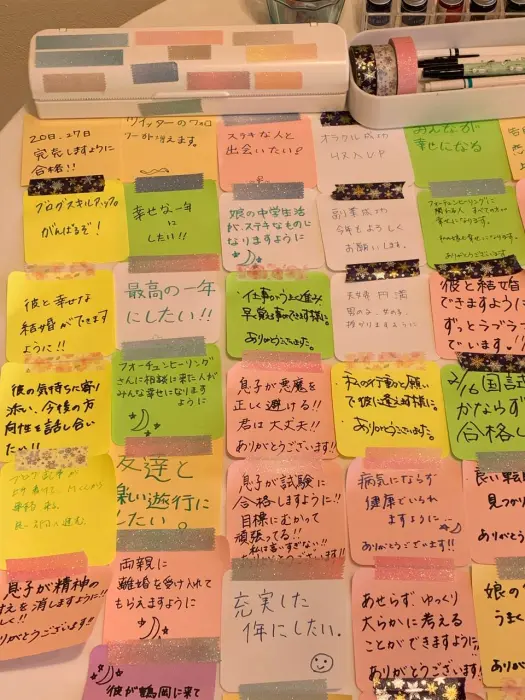 20日、27日
完売しますように
合格!!
ツイッターのフォロ
ワーが増えます。
ステキな人と
出会いたい!
オラクル成功
収入UP
みんなが
幸せになる
ブログスキルアップ
がんばるぞ!
幸せな一年
に
したい!!
娘の中学生活
が、ステキなものに
なりますように
副業成功
今年もよろしく
お願いします。
フォーチュンヒーリングに
関わる人 すべての方が
幸せになります。
ありがとうございます
彼と幸せな
結婚ができます
ように!!
最高の一年
にしたい!!
仕事がうまく進み
ありがとうございます。
夫婦円満
授かりますように
彼と結婚
できますように
ずっとラブラ
でいます!!
彼の気持ちに寄り
添い、今後の方
向性を話し合い
たい!!
フォーチュンヒーリング
さんに相談に来た人が
みんな幸せになります
ように
息子が悪魔を
正しく避ける!!
君は大丈夫!!
ありがとうございます!!
私の行動と願い
で彼に逢えます様に。
ありがとうございます。
2/16 国試
かならず
合格し
友達と
楽しい遊行に
したい。
息子が試験に
合格しますように!!
目標にむかって
頑張ってる!!
私は言いすぎない!!
ありがとうございます!!
病気にならず
健康でいられ
ますように
ありがとうございます!!
良い転
見つか
ありがと
息子が精神の
を消しますように!!
りがとうございます!!
両親に
離婚を受け入れて
もらえますように
充実した
1年にしたい。
あせらず、ゆっくり
大らかに考える
ことができますように
ありがとうございます!!
娘の
うまく
ありが
彼が鶴岡に来て